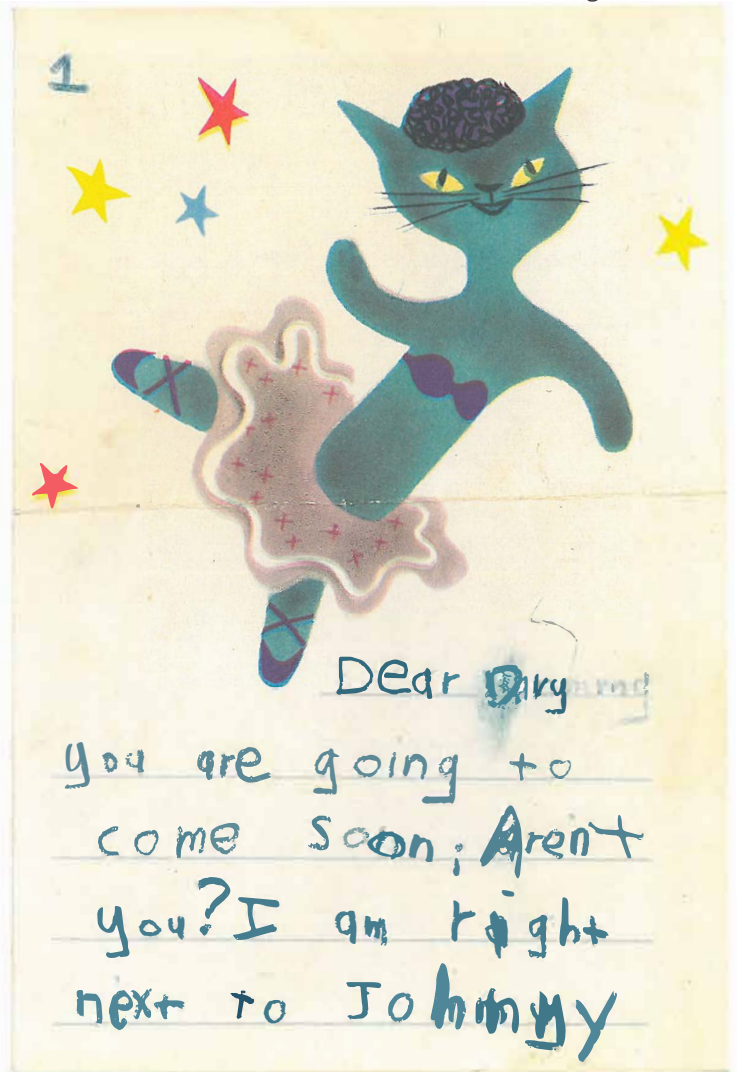 1
Dear
you are going to
come soon, Aren't
you? I am right
next to Johnny